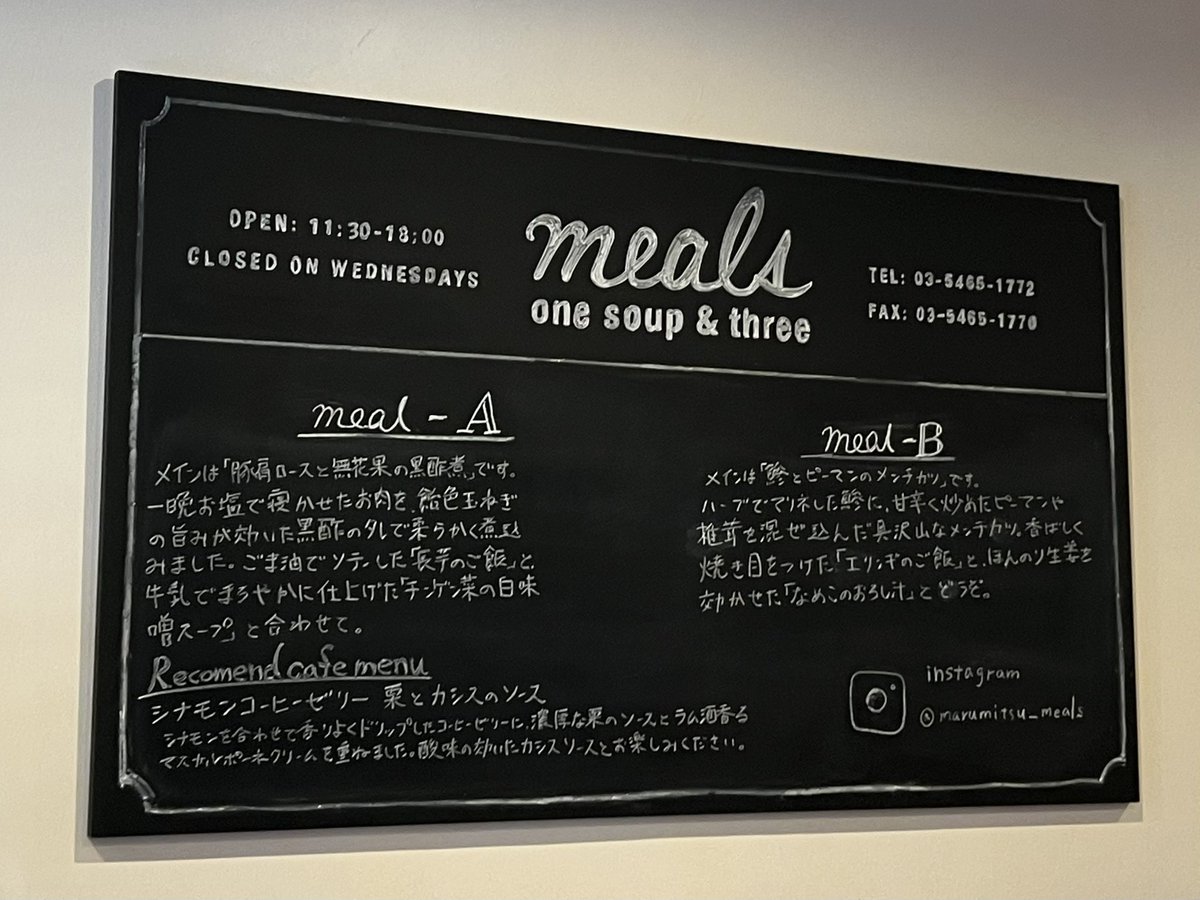 OPEN: 11:30-18:00
CLOSED ON WEDNESDAYS
meals
one soup & three
TEL: 03-5465-1772
FAX: 03-5465-1770
meal-A
メインは「豚肩ロースと無花果の黒酢煮」です。
一晩お塩で寝かせたお肉を、飴色玉ねぎ
の旨みが効いた黒酢のタレで柔らかく煮込
みました。ごま油でソテーした「長芋のご飯」と、
牛乳でまろやかに仕上げた「チンゲン菜の白味
噌スープ」と合わせて。
Recomend cafe menu
シナモンコーヒーゼリー 栗とカシスのソース
シナモンを合わせて香りよくドリップしたコーヒーゼリーに、濃厚な栗のソースとラム酒香る
マスカルポーネクリームを重ねました。酸味の効いたカシスソースとお楽しみください。
meal-B
メインは「鯵とピーマンのメンチカツ」です。
ハーブでマリネした鯵に、甘辛く炒めたピーマンや
椎茸を混ぜ込んだ具沢山なメンチカツ。香ばしく
焼き目をつけた「エリンギのご飯」と、ほんのり生姜を
効かせた「なめこのおろし汁」とどうぞ。
instagram
@marumitsu_meals